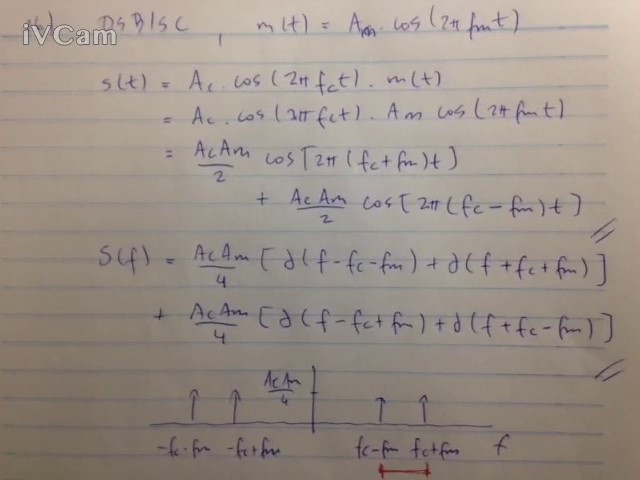 DSB/SC , m(t) = Am. cos(2π fmt)
iVCam
s(t) = Ac . cos(2π fct) . m(t)
= Ac . cos(2π fct) . Am cos(2π fmt)
= AcAm/2 cos[2π(fc+fm)t]
+ AcAm/2 cos[2π(fc-fm)t]
S(f) = AcAm/4 [∂(f-fc-fm) + ∂(f+fc+fm)]
+ AcAm/4 [∂(f-fc+fm) + ∂(f+fc-fm)]
AcAm/4
-fc-fm -fc+fm fc-fm fc+fm f